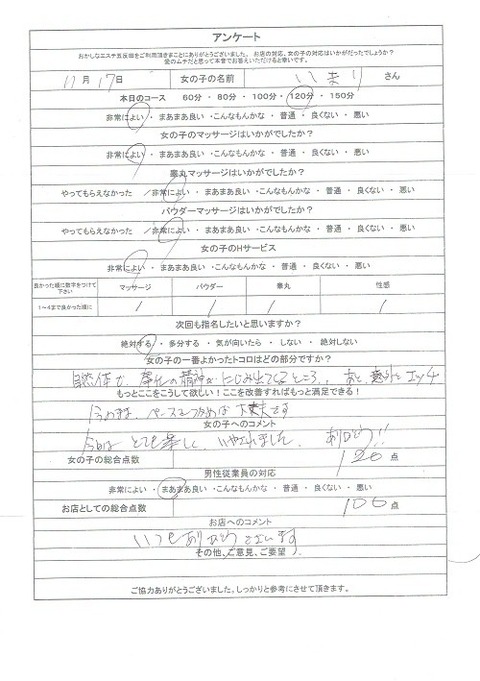 アンケート
おかしなエステ五反田をご利用頂きまことにありがとうございました。お店の対応、女の子の対応はいかがだったでしょうか?
愛のムチだと思って本音でお答えいただけると幸いです。
11月17日 女の子の名前 さん
本日のコース 60分・80分・100分・120分・150分
非常によい・まあまあ良い・こんなもんかな・普通・良くない・悪い
女の子のマッサージはいかがでしたか?
非常によい・まあまあ良い・こんなもんかな・普通・良くない・悪い
睾丸マッサージはいかがでしたか?
やってもらえなかった /非常によい・まあまあ良い・こんなもんかな・普通・良くない・悪い
パウダーマッサージはいかがでしたか?
やってもらえなかった /非常によい・まあまあ良い・こんなもんかな・普通・良くない・悪い
女の子のHサービス
非常によい・まあまあ良い・こんなもんかな・普通・良くない・悪い
良かった順に数字をつけて下さい マッサージ パウダー 睾丸 性感
1~4まで良かった順に 1 1 1 1
次回も指名したいと思いますか?
絶対する・多分する・気が向いたら・しない・絶対しない
女の子の一番よかったトコロはどの部分ですか?
自然体で、奉仕の精神がにじみ出てくるところ。あと、意外とエッチ
もっとここをこうして欲しい!ここを改善すればもっと満足できる!
今のまま、ペースをつかめば大丈夫です
女の子へのコメント
今日はとても楽しく、いやされました。ありがとう!!
女の子の総合点数 120点
男性従業員の対応
非常に良い・まあまあ良い・こんなもんかな・普通・良くない・悪い
お店としての総合点数 100点
お店へのコメント
いつもありがとうございます
その他、ご意見、ご要望
ご協力ありがとうございました。しっかりと参考にさせて頂きます。